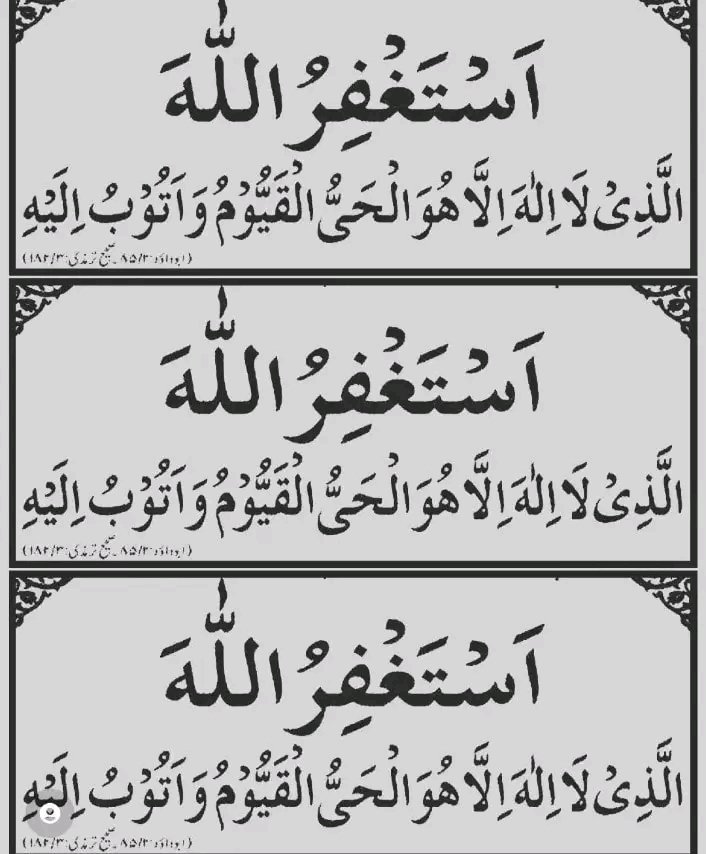 اَسْتَغْفِرُ اللّٰهَ
الَّذِیْ لَا اِلٰهَ اِلَّا هُوَ الْحَیُّ الْقَیُّوْمُ وَ اَتُوْبُ اِلَیْهِ
(ابوداؤد:۸۵/۲۔ صحیح ترمذی:۱۸۲/۳)
اَسْتَغْفِرُ اللّٰهَ
الَّذِیْ لَا اِلٰهَ اِلَّا هُوَ الْحَیُّ الْقَیُّوْمُ وَ اَتُوْبُ اِلَیْهِ
(ابوداؤد:۸۵/۲۔ صحیح ترمذی:۱۸۲/۳)
اَسْتَغْفِرُ اللّٰهَ
الَّذِیْ لَا اِلٰهَ اِلَّا هُوَ الْحَیُّ الْقَیُّوْمُ وَ اَتُوْبُ اِلَیْهِ
(ابوداؤد:۸۵/۲۔ صحیح ترمذی:۱۸۲/۳)